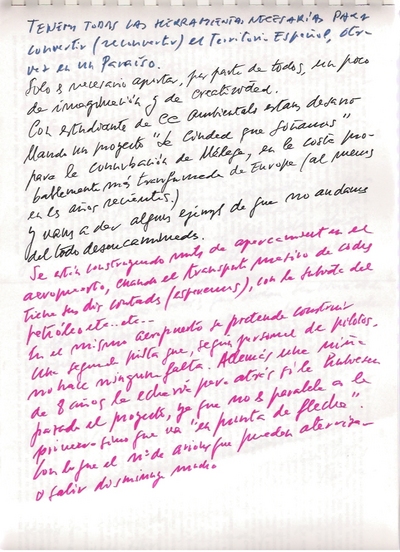 TENEMOS TODAS LAS HERRAMIENTAS NECESARIAS PARA
convertir (reconvertir) el Territorio Español, otra
vez en un Paraiso.
Solo es necesario aportar, por parte de todos, un poco
de imaginación y de creatividad.
Con estudiantes de CC Ambientales estamos desarro
llando un proyecto "la Ciudad que Soñamos"
para la conurbación de Málaga, en la costa pro-
bablemente más transformada de Europa (al menos
en los años recientes.)
y vamos a dar algunos ejemplos de que no andamos
del todo desencaminados.
Se están construyendo miles de aparcamientos en el
aeropuerto, cuando el transporte masivo de coches
tiene sus dias contados (esperemos), con la subida del
petróleo etc.. etc..
En el mismo aeropuerto se pretende construir
una segunda pista que, según personal de pilotos,
no hace ninguna falta. Además una niña
de 8 años la echaría para atrás si le hubiesen
pasado el proyecto, ya que no es paralela a la
primera sino que va "en punta de flecha".
Con lo que el nº de aviones que pueden aterriza-
o salir disminuye mucho